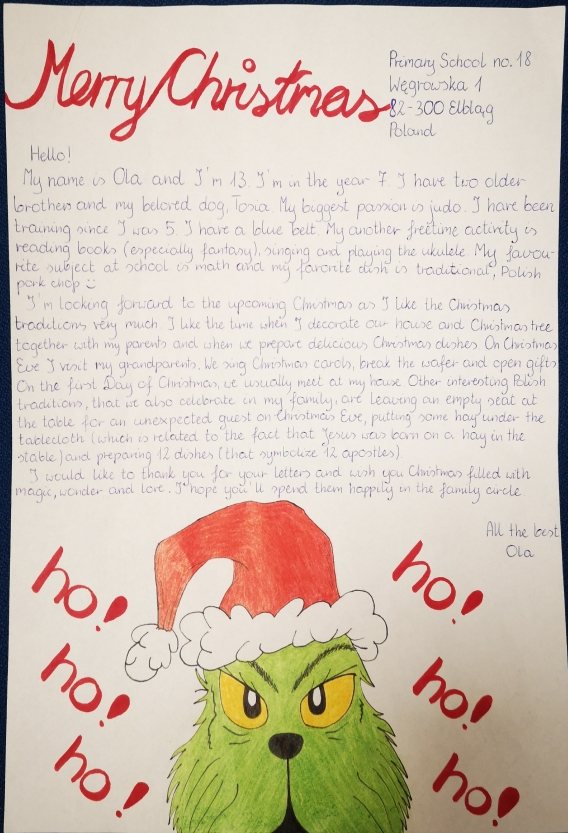 Merry Christmas
Primary School no. 18
Węgrowska 1
82-300 Elbląg
Poland
Hello!
My name is Ola and I'm 13. I'm in the year 7. I have two older
brothers and my beloved dog, Tosia. My biggest passion is judo. I have been
training since I was 5. I have a blue belt. My another freetime activity is
reading books (especially fantasy), singing and playing the ukulele. My favou-
rite subject at school is math and my favorite dish is traditional, Polish
pork chop :)
I'm looking forward to the upcoming Christmas as I like the Christmas
traditions very much. I like the time when I decorate our house and Christmas tree
together with my parents and when we prepare delicious Christmas dishes. On Christmas
Eve I visit my grandparents. We sing Christmas carols, break the wafer and open gifts.
On the first Day of Christmas, we usually meet at my house. Other interesting Polish
traditions, that we also celebrate in my family, are leaving an empty seat at
the table for an unexpected guest on Christmas Eve, putting some hay under the
tablecloth (which is related to the fact that Jesus was born on a hay in the
stable) and preparing 12 dishes (that symbolize 12 apostles).
I would like to thank you for your letters and wish you Christmas filled with
magic, wonder and love. I hope you'll spend them happily in the family circle.
All the best
Ola
ho!
ho!
ho!
ho!
ho!
ho!